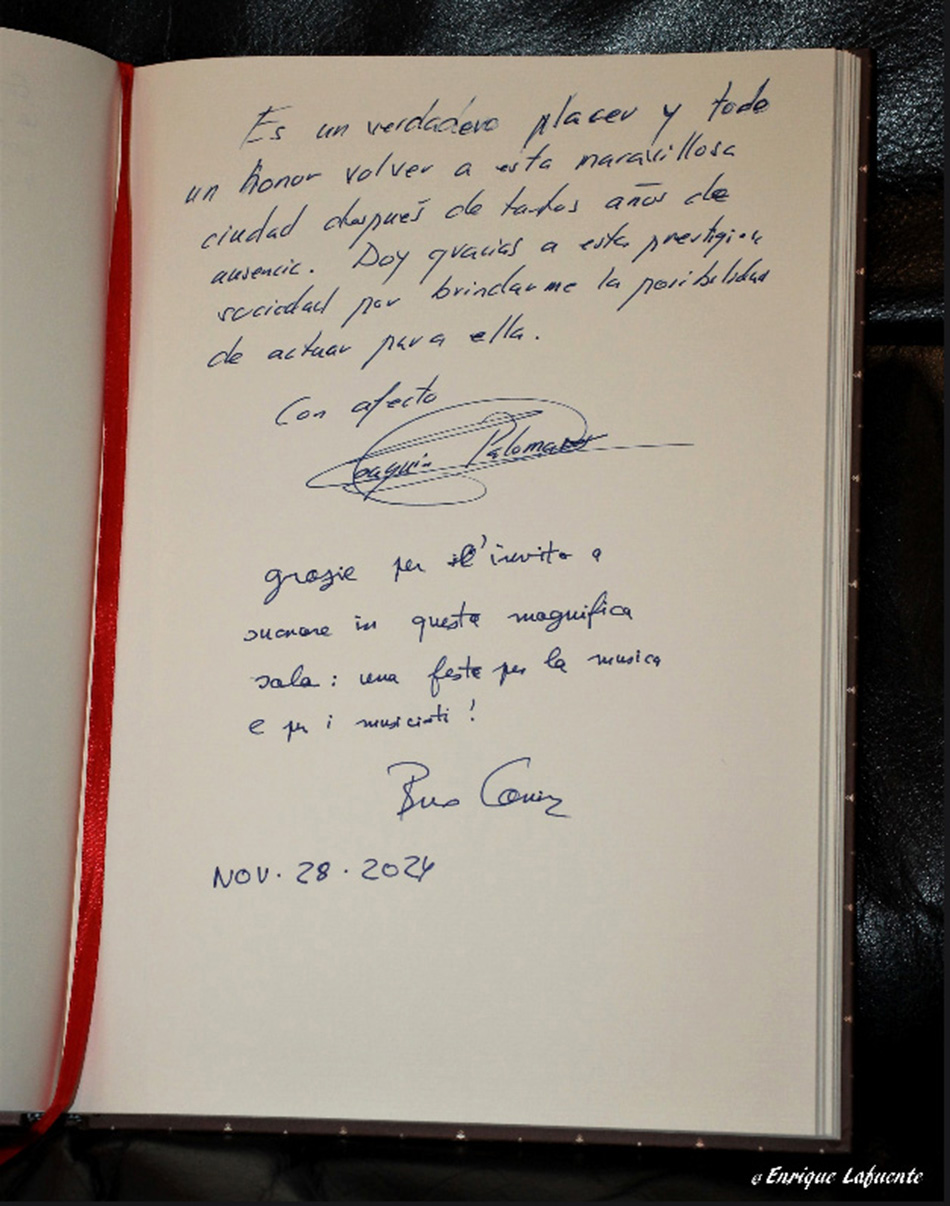 Es un verdadero placer y todo
un honor volver a esta maravillosa
ciudad después de tantos años de
ausencia. Doy gracias a esta prestigiosa
sociedad por brindarme la posibilidad
de actuar para ella.
Con afecto
Joaquín Palomares
grazie per l'invito a
suonare in questa magnifica
sala: una festa per la musica
e per i musicisti!
NOV. 28. 2024
@ Enrique Lafuente